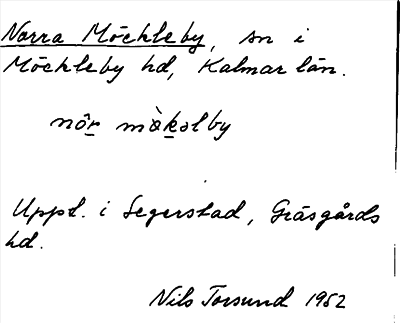 Norra Möckleby, sn i
Möckleby hd, Kalmar län.
nór̲ mòk̲əlby
Uppt. i Segerstad, Gräsgårds
hd.
Nils Torsund 1952